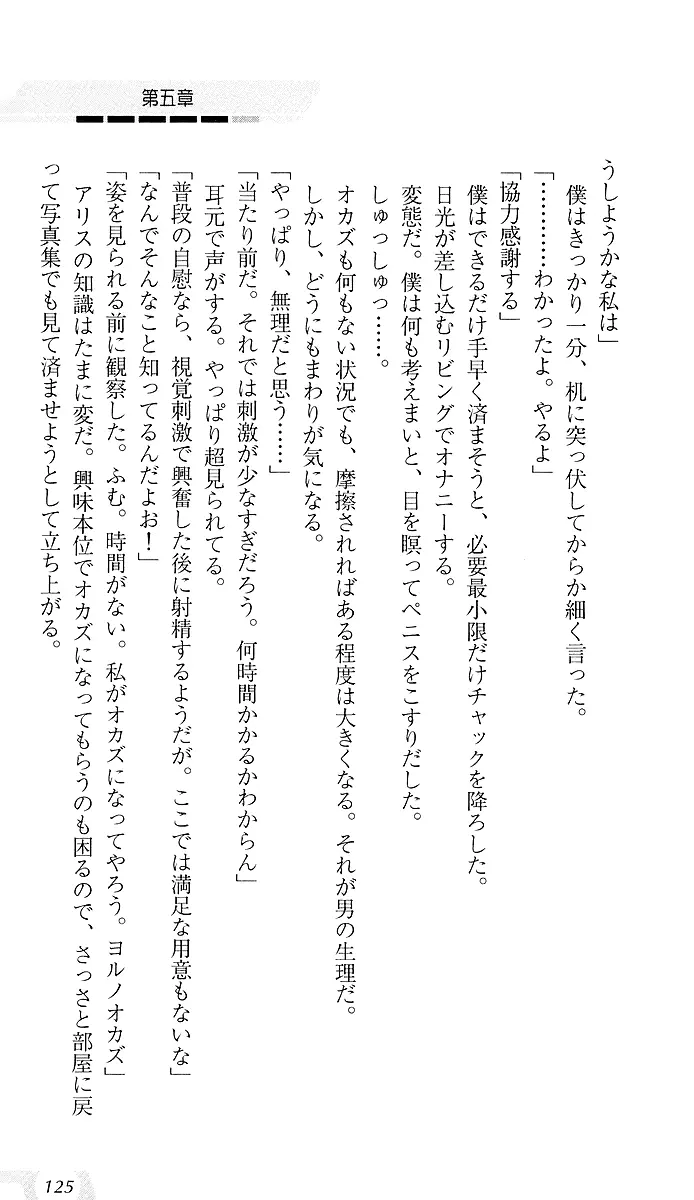 第五章
うしようかな私は」
僕はきっかり一分、机に突っ伏してからか細く言った。
「…………わかったよ。やるよ」
「協力感謝する」
僕はできるだけ手早く済まそうと、必要最小限だけチャックを降ろした。
日光が差し込むリビングでオナニーする。
変態だ。僕は何も考えまいと、目を瞑ってペニスをこすりだした。
しゅっしゅっ……。
オカズも何もない状況でも、摩擦されればある程度は大きくなる。それが男の生理だ。
しかし、どうにもまわりが気になる。
「やっぱり、無理だと思う……」
「当たり前だ。それでは刺激が少なすぎだろう。何時間かかるかわからん」
耳元で声がする。やっぱり超見られてる。
「普段の自慰なら、視覚刺激で興奮した後に射精するようだが。ここでは満足な用意もないな」
「なんでそんなこと知ってるんだよお！」
「姿を見られる前に観察した。ふむ。時間がない。私がオカズになってやろう。ヨルノオカズ」
アリスの知識はたまに変だ。興味本位でオカズになってもらうのも困るので、さっさと部屋に戻
って写真集でも見て済ませようとして立ち上がる。
125